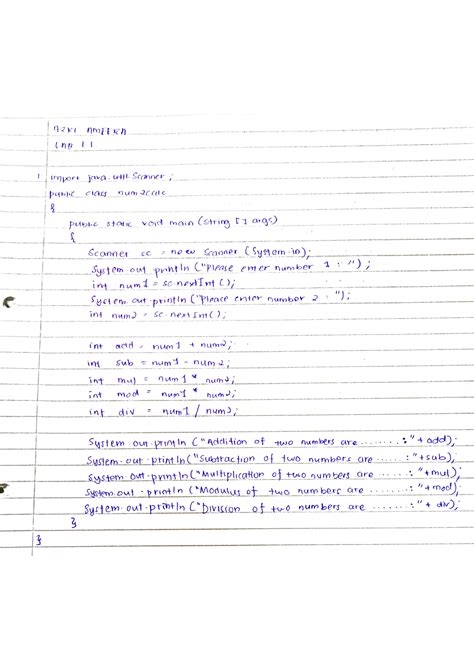 AZKI AMEERA
LAB 11
1 import java.util.Scanner;
public class num2calc
{
public static void main (String [] args)
{
Scanner sc = new Scanner (System.in);
System.out.println ("Please enter number 1 : ");
int num1 = sc.nextInt ();
System.out.println ("Please enter number 2 : ");
int num2 = sc.nextInt();
int add = num1 + num2;
int sub = num1 - num2;
int mul = num1 * num2;
int mod = num1 * num2;
int div = num1 / num2;
System.out.println ("Addition of two numbers are .......:"+ add);
System.out.println ("Subtraction of two numbers are ...... :"+sub);
System.out.println ("Multiplication of two numbers are ...... :"+mul);
System.out.println ("Modulus of two numbers are ...... :"+ mod);
System.out.println ("Division of two numbers are ...... :"+ div);
}
}